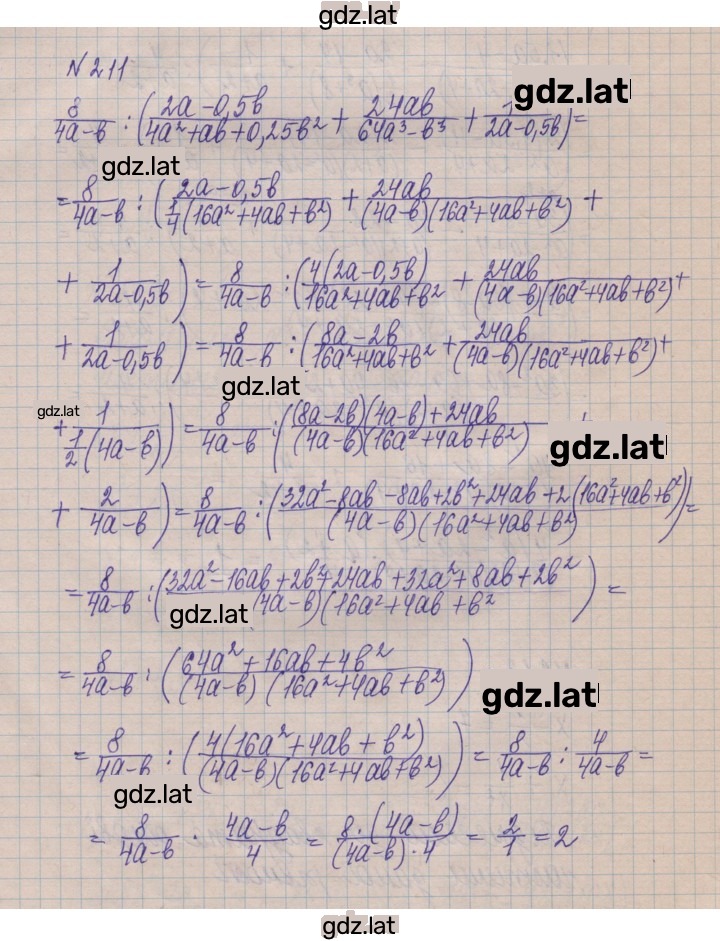 gdz.lat
N 211
gdz.lat
8/(4a-в) : ((2a-0,5в)/(4a²+aв+0,25в²) + 24aв/(64a³-в³) + 1/(2a-0,5в)) =
gdz.lat
= 8/(4a-в) : ((2a-0,5в)/(1/4(16a²+4aв+в²)) + 24aв/((4a-в)(16a²+4aв+в²)) +
+ 1/(2a-0,5в)) = 8/(4a-в) : (4(2a-0,5в)/(16a²+4aв+в²) + 24aв/((4a-в)(16a²+4aв+в²)) +
+ 1/(2a-0,5в)) = 8/(4a-в) : ((8a-2в)/(16a²+4aв+в²) + 24aв/((4a-в)(16a²+4aв+в²)) +
gdz.lat
gdz.lat
+ 1/(1/2(4a-в))) = 8/(4a-в) : (((8a-2в)(4a-в)+24aв)/((4a-в)(16a²+4aв+в²)) +
gdz.lat
+ 2/(4a-в)) = 8/(4a-в) : ((32a²-8aв-8aв+2в²+24aв+2(16a²+4aв+в²))/((4a-в)(16a²+4aв+в²))) =
= 8/(4a-в) : ((32a²-16aв+2в²+24aв+32a²+8aв+2в²)/((4a-в)(16a²+4aв+в²)) =
gdz.lat
= 8/(4a-в) : ((64a²+16aв+4в²)/((4a-в)(16a²+4aв+в²)))
gdz.lat
= 8/(4a-в) : (4(16a²+4aв+в²)/((4a-в)(16a²+4aв+в²))) = 8/(4a-в) : 4/(4a-в) =
gdz.lat
= 8/(4a-в) · (4a-в)/4 = 8·(4a-в)/((4a-в)·4) = 2/1 = 2
gdz.lat